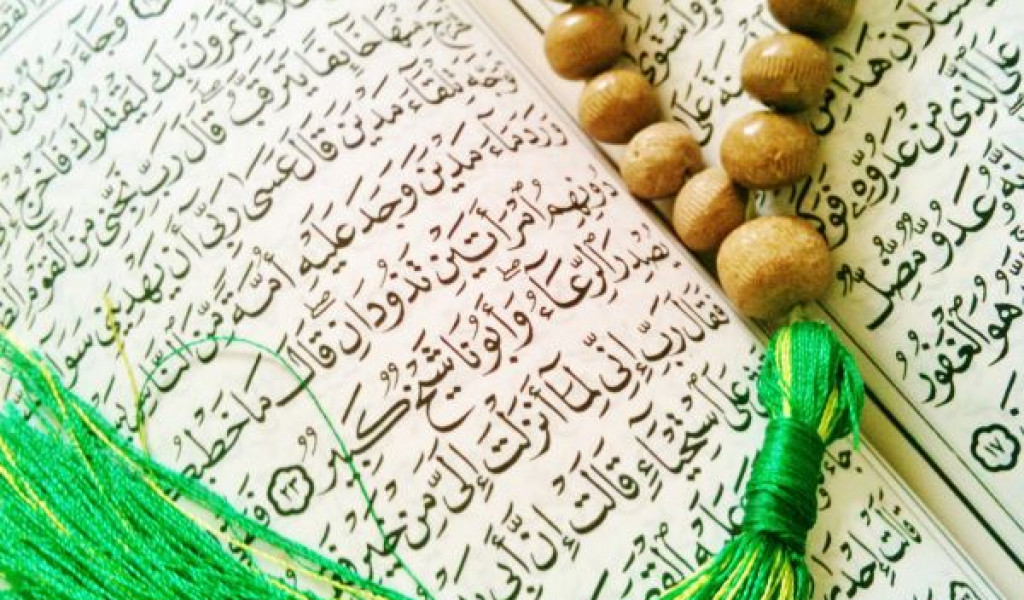 وَاسْتَوَىٰ
هَٰذَا مِن
عَلَى الَّذِي مِنْ عَدُوِّهِ فَوَكَ
عَدُوٌّ مُّضِلٌّ
هُوَ الْغَفُورُ
١٧
وَجَاءَ رَجُلٌ مِّنْ
يَأْتَمِرُونَ بِكَ لِيَقْتُلُوكَ فَاخْرُجْ
مِنْهَا خَائِفًا يَتَرَقَّبُ ۖ قَالَ رَبِّ نَجِّنِي مِنَ الْقَوْمِ
تِلْقَاءَ مَدْيَنَ قَالَ عَسَىٰ رَبِّي أَن يَهْدِيَنِي سَوَ
وَرَدَ مَاءَ مَدْيَنَ وَجَدَ عَلَيْهِ أُمَّةً مِّنَ النَّاسِ
دُونِهِمُ امْرَأَتَيْنِ تَذُودَانِ ۖ قَالَ مَا خَطْبُ
يُصْدِرَ الرِّعَاءُ ۖ وَأَبُونَا شَيْخٌ كَبِيرٌ ٢٣
فَقَالَ رَبِّ إِنِّي لِمَا أَنزَلْتَ إِلَيَّ مِنْ خَيْرٍ
عَلَى اسْتِحْيَاءٍ قَالَتْ إِنَّ أَبِي
عَلَيْهِ الْقَصَ
قَالَتْ إِحْدَ